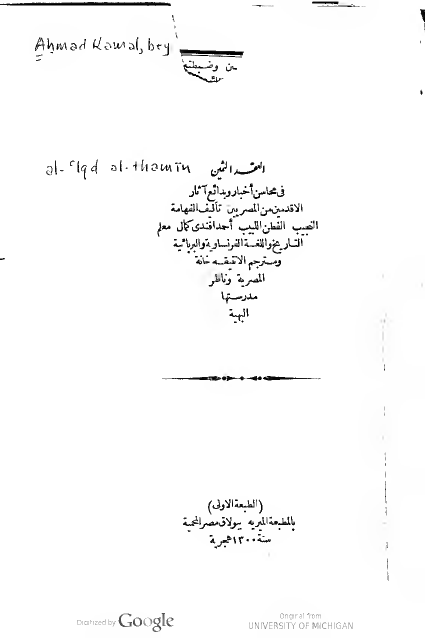 Ahmad Kamal, bey
al-ʿIqd al-thamīn
العقد الثمين
فى محاسن أخبار وبدائع آثار
الاقدمين من المصريين تأليف الفهامة
النجيب الفطن اللبيب أحمد افندى كمال معلم
التاريخ واللغة الفرنساوية والبربائية
ومترجم الانتيقه خانة
المصرية وناظر
مدرستها
البهية
(الطبعة الاولى)
بالمطبعة الميريه ببولاق مصر المحمية
سنة ١٣٠٠ هجرية
Digitized by Google
Original from
UNIVERSITY OF MICHIGAN